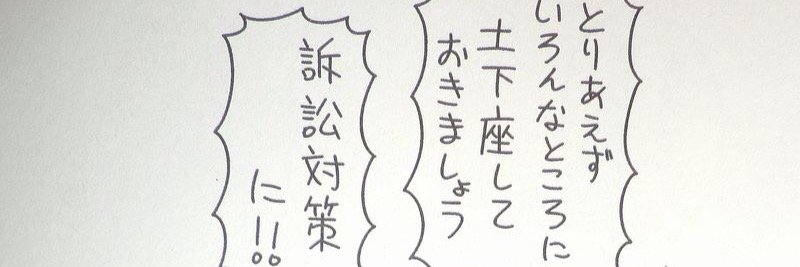 とりあえず
いろんなところに
土下座して
おきましょう
訴訟対策
に!!